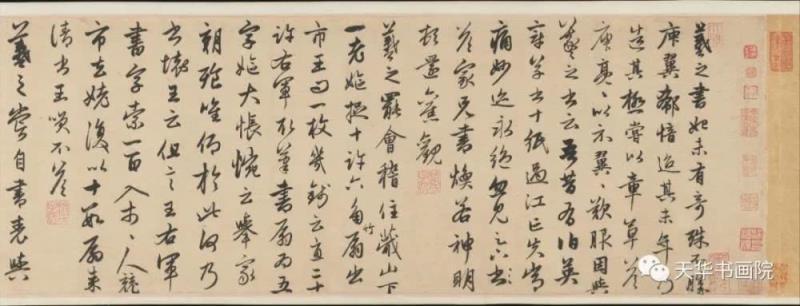 羲之書始未有奇殊不勝
庾翼郗愔迨其末年乃
造其極嘗以章草答
庾亮々以示翼々歎服因與
羲之書云吾昔有伯英
章草書十紙過江亡失常
痛妙迹永絕忽見足下
答家兄書煥若神明
頓還舊觀
羲之罷會稽住蕺山下
一老嫗捉十許六角竹扇出
市王問一枚幾錢云直二十
許右軍取筆書扇為五
字嫗大悵惋云舉家
朝飧唯仰於此何乃
書壞王云但言王右軍
書字索一百入市々人競
市去姥復以十數扇來
請書王笑不答
羲之嘗自書表與
天华书画院